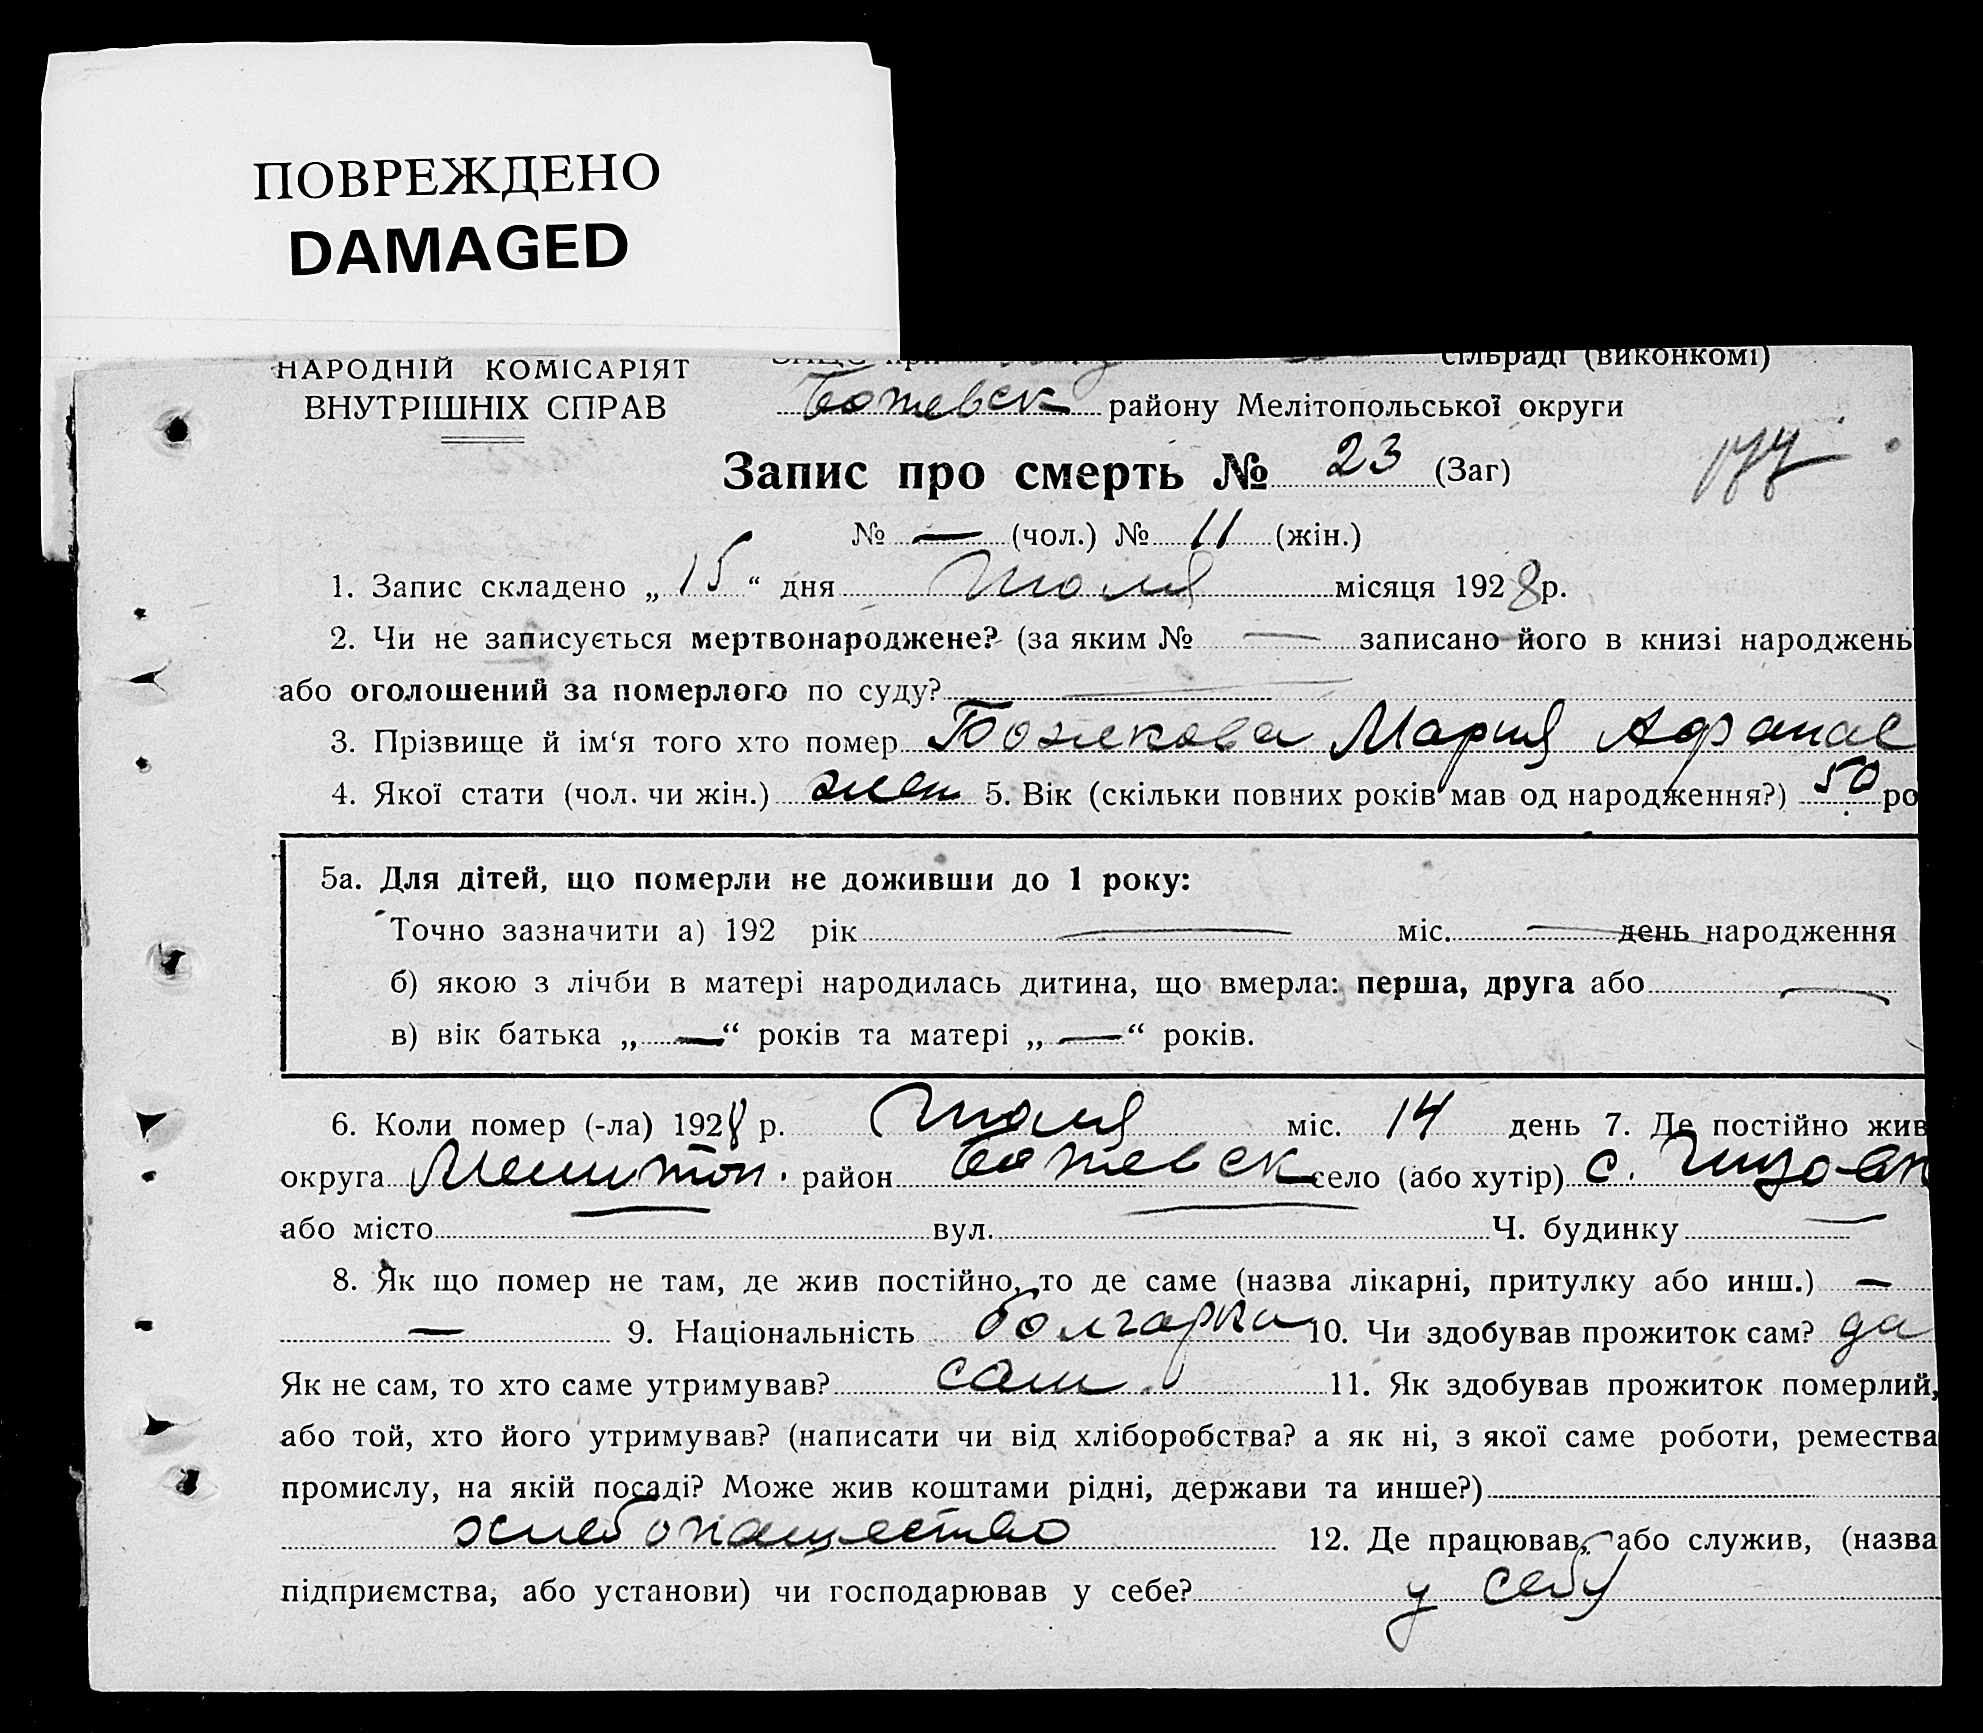 ПОВРЕЖДЕНО
DAMAGED
НАРОДНІЙ КОМІСАРІЯТ
ВНУТРІШНІХ СПРАВ
ЗАЦС при сільраді (виконкомі)
Ботевск району Мелітопольської округи
Запис про смерть № 23 (Заг)
177
№ — (чол.) № 11 (жін.)
1. Запис складено „15“ дня Июля місяця 1928 р.
2. Чи не записується мертвонароджене? (за яким № — записано його в книзі народжень
або оголошений за померлого по суду? —
3. Прізвище й ім‘я того хто помер Божкова Мария Афанас
4. Якої стати (чол. чи жін.) жен 5. Вік (скільки повних років мав од народження?) 50 ро
5а. Для дітей, що померли не доживши до 1 року:
Точно зазначити а) 192 рік — міс. — день народження
б) якою з лічби в матері народилась дитина, що вмерла: перша, друга або —
в) вік батька „—“ років та матері „—“ років.
6. Коли помер (-ла) 1928 р. Июля міс. 14 день 7. Де постійно жив
округа Мелитоп. район Ботевск село (або хутір) с.
або місто — вул. — Ч. будинку —
8. Як що помер не там, де жив постійно, то де саме (назва лікарні, притулку або инш.) —
— 9. Національність болгарка 10. Чи здобував прожиток сам? да
Як не сам, то хто саме утримував? сам. 11. Як здобував прожиток померлий,
або той, хто його утримував? (написати чи від хліборобства? а як ні, з якої саме роботи, ремества
промислу, на якій посаді? Може жив коштами рідні, держави та инше?)
хлебопашество 12. Де працював, або служив, (назва
підприємства, або установи) чи господарював у себе? у себя